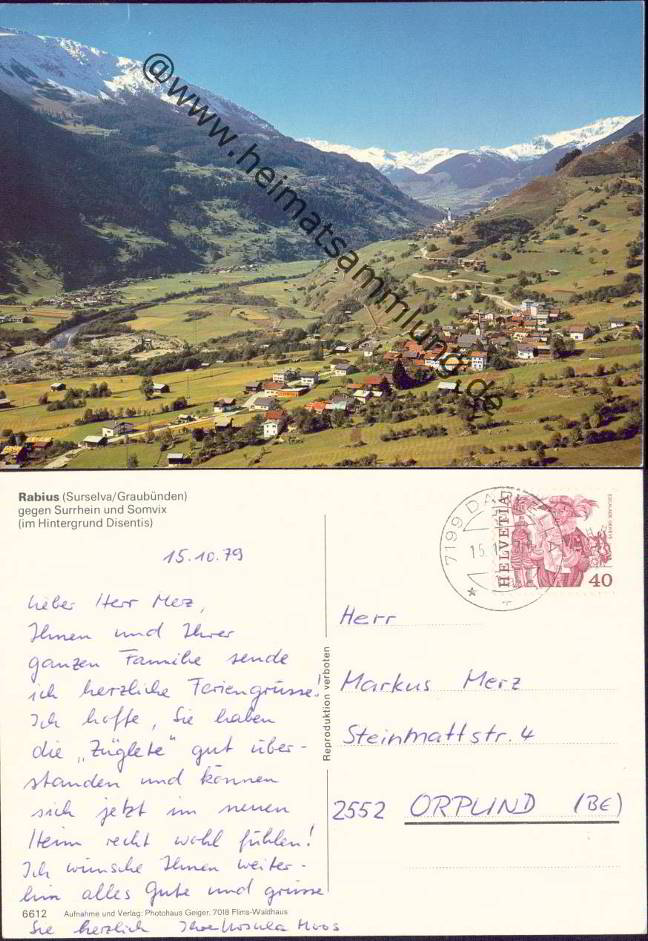 @www.heimatsammlung.de
Rabius (Surselva/Graubünden)
gegen Surrhein und Somvix
(im Hintergrund Disentis)
15.10.79
Lieber Herr Merz,
Ihnen und Ihrer
ganzen Familie sende
ich herzliche Feriengrüsse!
Ich hoffe, Sie haben
die „Züglete“ gut über-
standen und können
sich jetzt im neuen
Heim recht wohl fühlen!
Ich wünsche Ihnen weiter-
hin alles Gute und grüsse
Sie herzlich Ihre Ursula Moos
6612 Aufnahme und Verlag: Photohaus Geiger, 7018 Flims-Waldhaus
Reproduktion verboten
7199
15.1
HELVETIA
40
Herr
Markus Merz
Steinmattstr. 4
2552 ORPUND (BE)